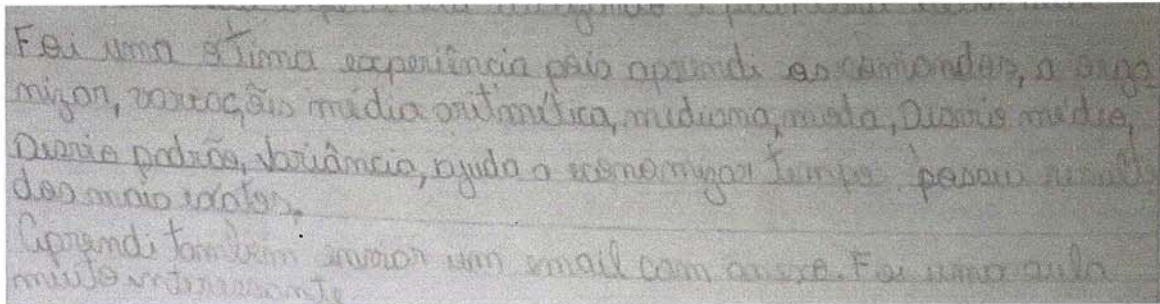 Foi uma ótima experiência pois aprendi os comandos, a orga
nizar, variações média aritmética, mediana, moda, Desvio médio,
Desvio padrão, Variância, ajuda a economizar tempo, possui resulta
dos mais exatos.
Aprendi também enviar um email com anexo. Foi uma aula
muito interessante